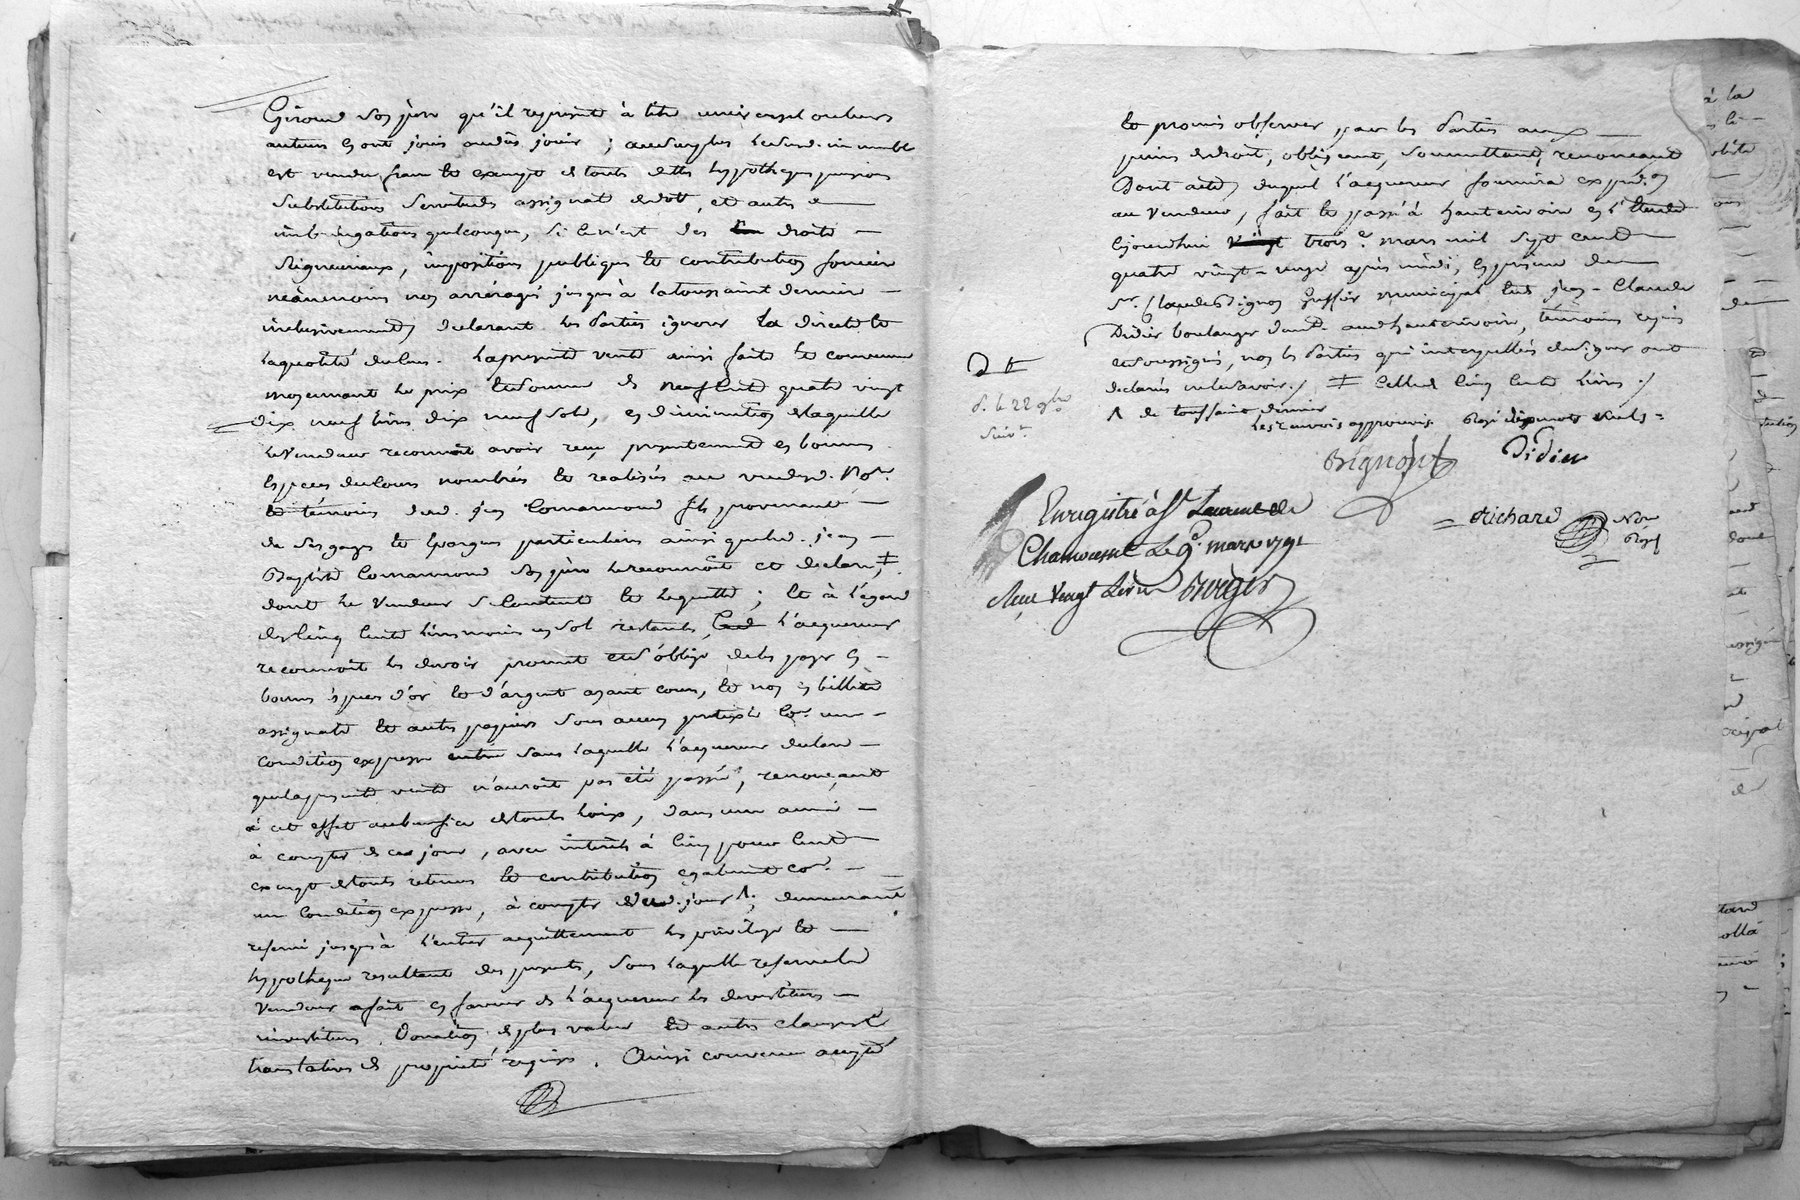 Giroud son père qu'il représente à titre universel ou leurs
auteurs en ont joui ou dû jouir ; au surplus led. immeuble
est vendu franc et exempt de touts dettes hypotheques pensions
substitutions servitudes assignat de dot, et autres
quelconques, si ce n'est des droits
seigneuriaux, impositions publiques et contribution foncière
néanmoins non arréragés jusqu'à la toussaint dernier
inclusivement, declarant les parties ignorer la directe et
la quotité du cens. La presente vente ainsi faite et convenue
moyennant le prix et somme de neuf cents quatre vingt
dix neuf livres dix neuf sols, en diminution de laquelle
le vendeur reconnoit avoir reçu presentement en bonnes
espèces de cours nombrés et realisés au vu de nd. No.re
et témoins dud. jean Comarmond fils provenant
de ses gages et épargnes particuliers ainsi que led. jean
Baptiste Comarmond son père le reconnoit et declare, ‡
dont le vendeur se contente et le quitte ; et à l'égard
des cinq cents livres moins un sol restants, l'acquereur
reconnoit les devoir promet et s'oblige de les payer en
bonnes espèces d'or et d'argent ayant cours, et non en billets
assignats et autres papiers sous aucun pretexte co.e une
condition expresse sans laquelle l'acquereur declare
que la presente vente n'auroit pas été passée, renonçant
à cet effet au benefice de touts loix, dans une année
à compter de ce jour, avec intérêts à cinq pour cent
exempt de touts retenues et contribution egalement co.e
une condition expresse, à compter dud. jour Λ ; demeurant
reservé jusqu'à l'entier acquittement les privilege et
hypotheque resultant des presents, sous laquelle reserve led.
vendeur a fait en faveur de l'acquereur les devestitures
investitures, Donation de plus value et autres clauses
translatives de propriété requises. Ainsi convenu accepté
et promis observer, par les Parties aux
peines de droit, obligeant, soumettant, renonçant
Dont acte, duquel l'acquereur fournira expéd.on
au vendeur, fait et passé à hauterivoire en l'étude
cejourd'hui trois.e mars mil sept cent
quatre vingt-onze après midi, en presence de
Sr. Claude Bignon greffier municipal et de jean-Claude
Didier boulanger dem.t aud. hauterivoire, témoins requis
et soussignés, non les Parties qui interpellées de signer ont
declarés ne le savoir ./ ‡ celle de cinq cents livres ./
Λ de toussaint dernier
les renvois approuvés Rayé dix mots nuls =
Bignon Didier
= Richard Nore
Royl
d. le 22 9bre
suiv.t
Enregistré à St Laurent de
Chamousset le 9.e mars 1791
Reçu vingt livres Burgier